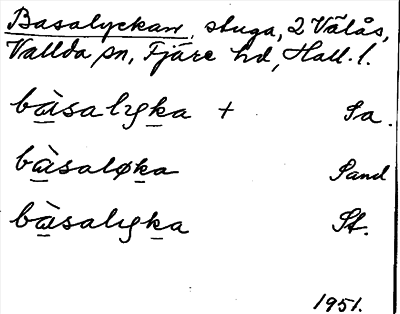 Basalyckan, stuga, 2 Välås,
Vallda sn, Fjäre hd, Hall. l.
bàsalyka + Sa.
bàsaløka Sand
bàsalyka St.
1951.